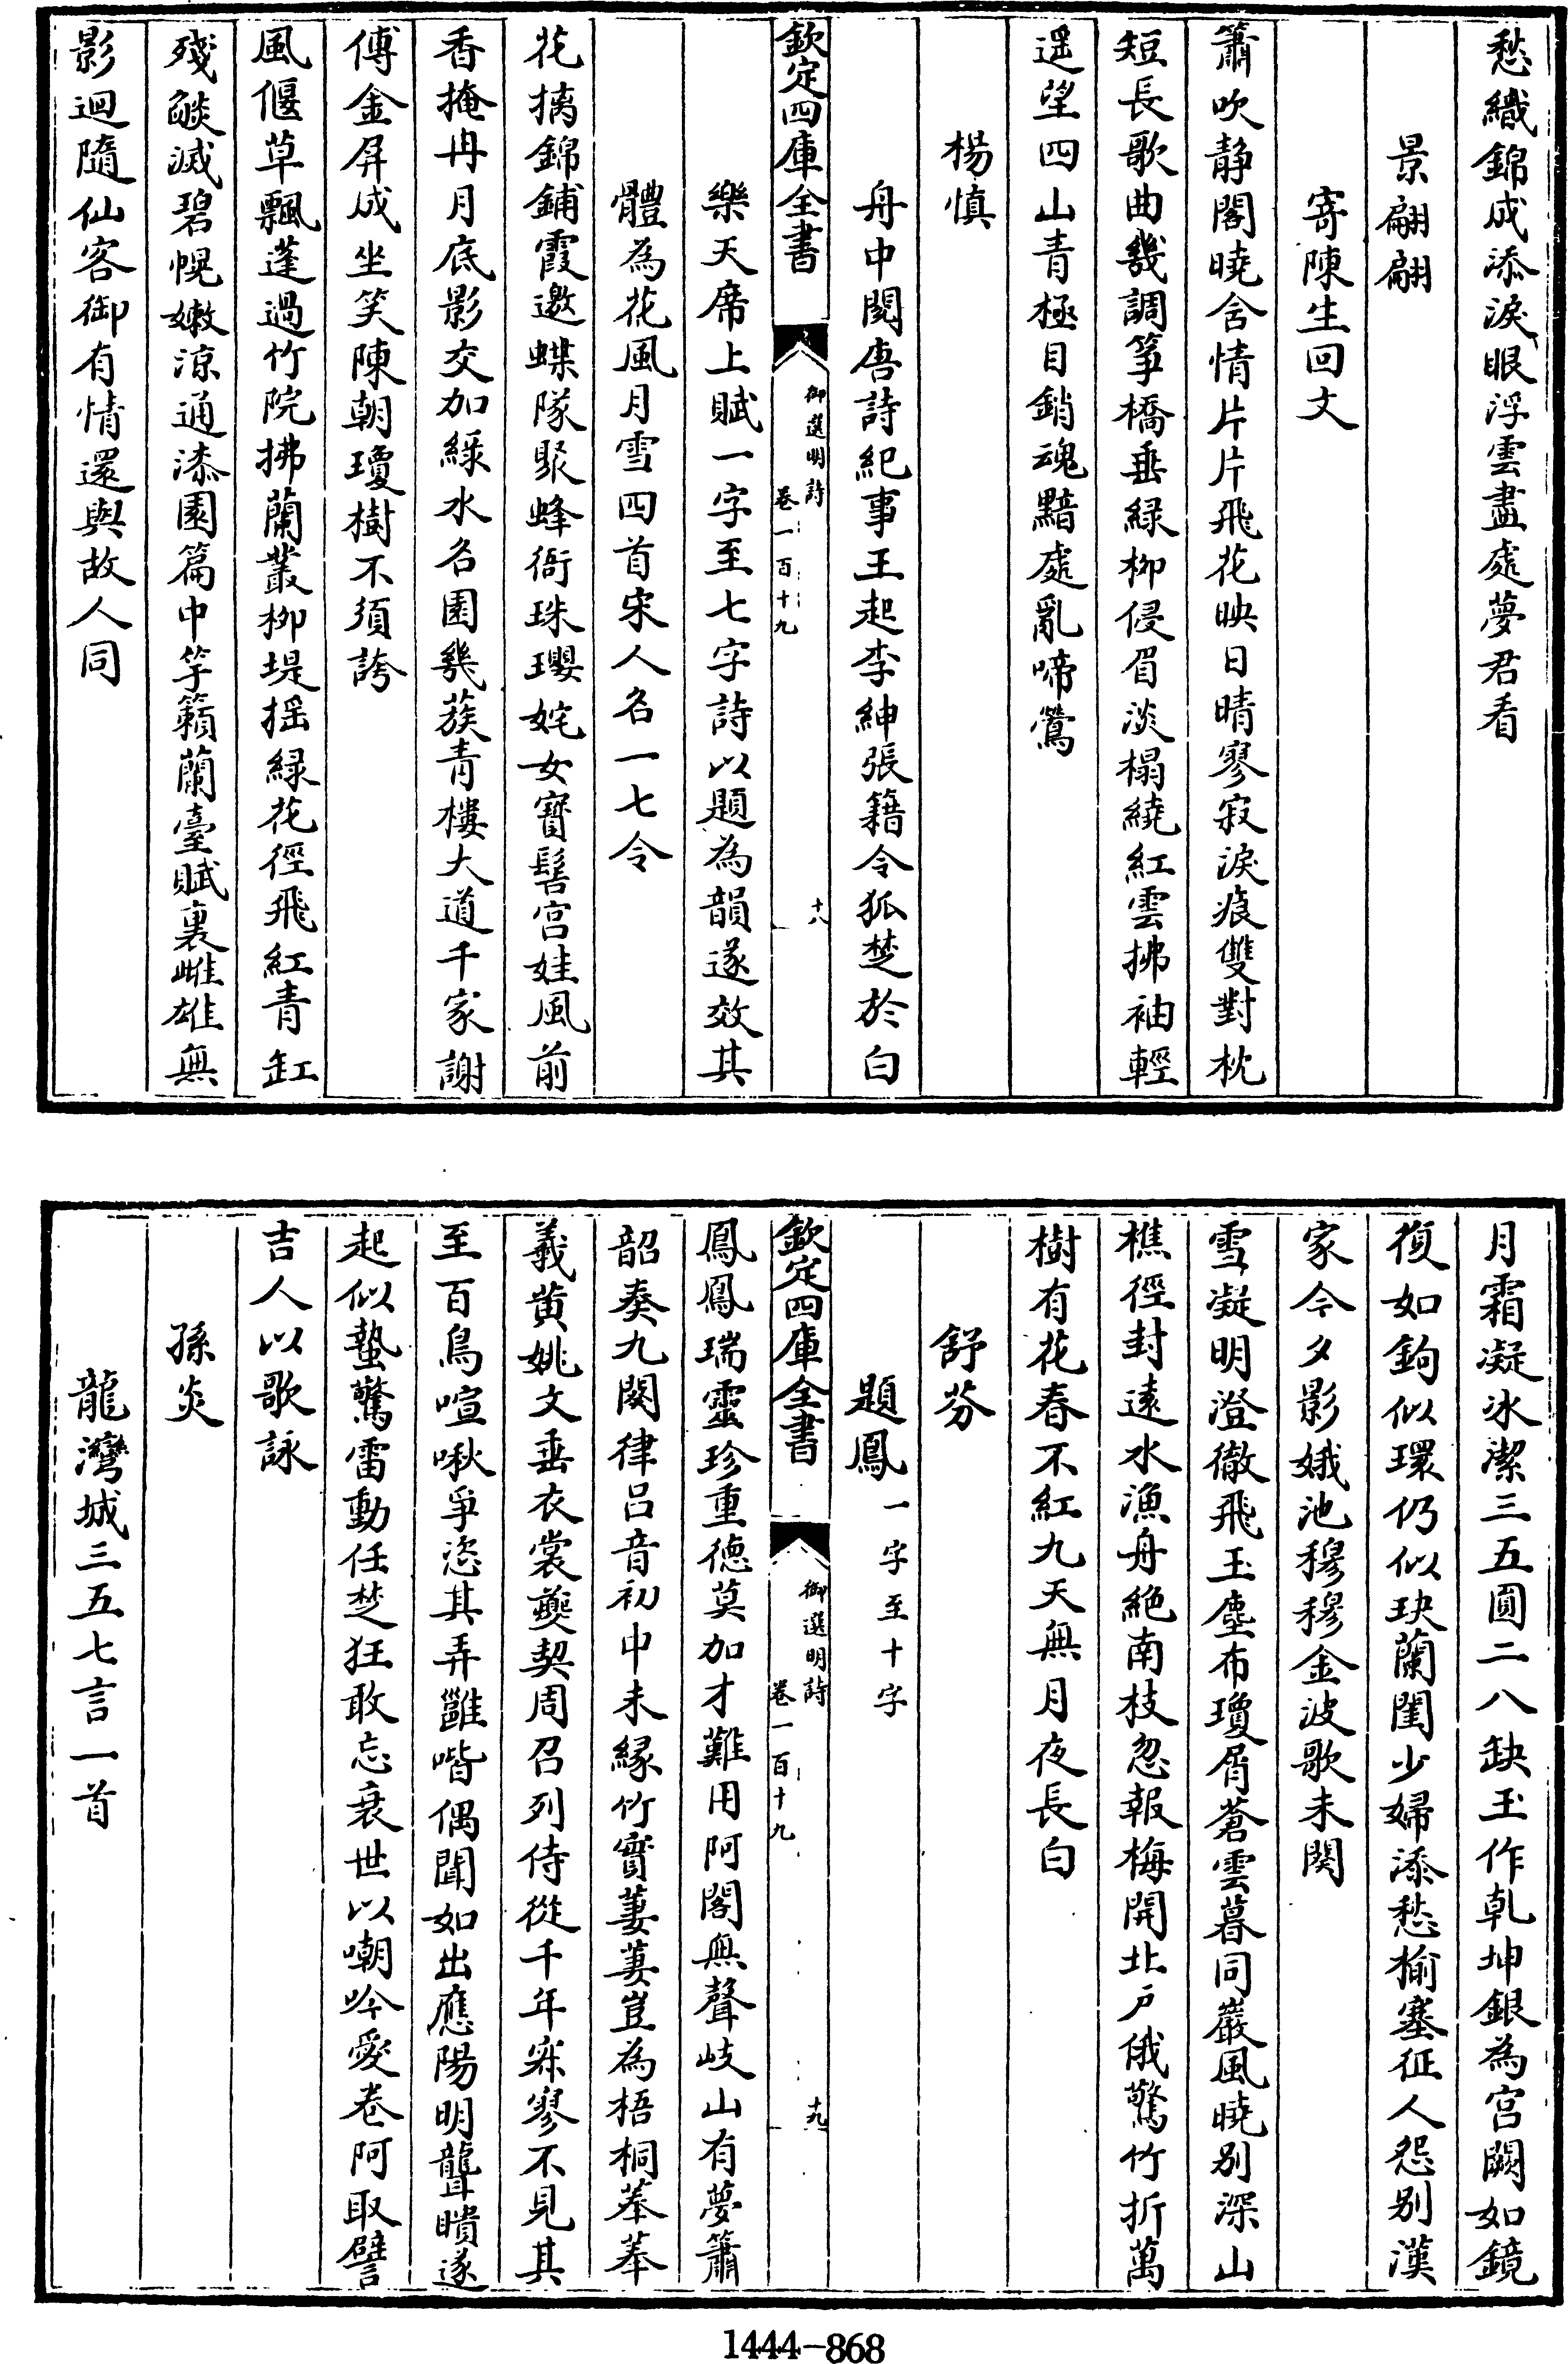 愁織錦成添淚眼浮雲盡處夢君看
景翩翩
寄陳生回文
簫吹静閣曉含情片片飛花映日晴寥寂淚痕雙對枕
短長歌曲幾調箏橋垂緑柳侵眉淡榻繞紅雲拂袖輕
遥望四山青極目銷魂黯處亂啼鶯
楊慎
舟中閱唐詩紀事王起李紳張籍令狐楚於白
欽定四庫全書
御選明詩
卷一百十九
十八
樂天席上賦一字至七字詩以題為韻遂效其
體為花風月雪四首宋人名一七令
花摛錦鋪霞邀蝶隊聚蜂衙珠瓔姹女寶髻宫娃風前
香掩冉月底影交加緑水名園幾蔟青樓大道千家謝
傅金屏成坐笑陳朝瓊樹不須誇
風偃草飄蓬過竹院拂蘭叢柳堤揺緑花徑飛紅青缸
殘燄滅碧幌嫩涼通漆園篇中竽籟蘭臺賦裏雌雄無
影迴隨仙客御有情還與故人同
月霜凝冰潔三五圓二八缺玉作乹坤銀為宫闕如鏡
復如鉤似環仍似玦蘭閨少婦添愁榆塞征人怨别漢
家今夕影娥池穆穆金波歌未闋
雪凝明澄徹飛玉塵布瓊屑蒼雲暮同巖風曉别深山
樵徑封遠水漁舟絶南枝忽報梅開北户俄驚竹折萬
樹有花春不紅九天無月夜長白
舒芬
題鳳一字至十字
欽定四庫全書
御選明詩
卷一百十九
十九
鳳鳳瑞靈珍重德莫加才難用阿閣無聲岐山有夢簫
韶奏九闋律吕音初中未縁竹實萋萋豈為梧桐菶菶
羲黄姚文垂衣裳夔契周召列侍從千年寂寥不見其
至百鳥喧啾爭恣其弄雝喈偶聞如出應陽明聾瞶遂
起似蟄驚雷動任楚狂敢忘衰世以嘲吟愛卷阿取譬
吉人以歌詠
孫炎
龍灣城三五七言一首
1444-868